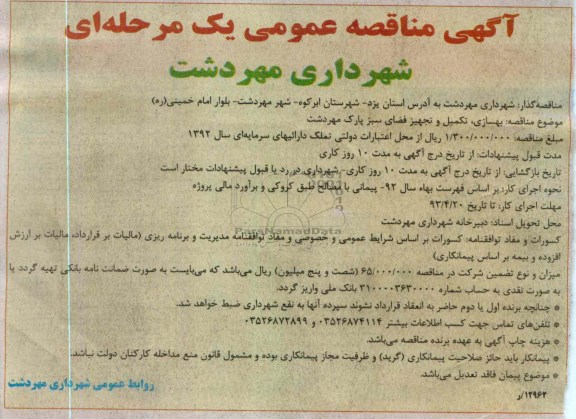 آگهی مناقصه عمومی یک مرحله‌ای
شهرداری مهردشت
مناقصه‌گذار: شهرداری مهردشت به آدرس استان یزد- شهرستان ابرکوه- شهر مهردشت- بلوار امام خمینی(ره)
موضوع مناقصه: بهسازی، تکمیل و تجهیز فضای سبز پارک مهردشت
مبلغ مناقصه: ۱/۳۰۰/۰۰۰/۰۰۰ ریال از محل اعتبارات دولتی تملک دارائیهای سرمایه‌ای سال ۱۳۹۲
مدت قبول پیشنهادات: از تاریخ درج آگهی به مدت ۱۰ روز کاری
تاریخ بازگشایی: از تاریخ درج آگهی به مدت ۱۰ روز کاری- شهرداری در رد یا قبول پیشنهادات مختار است
نحوه اجرای کار: بر اساس فهرست بهاء سال ۹۲- پیمانی با مصالح طبق کروکی و برآورد مالی پروژه
مهلت اجرای کار: تا تاریخ ۹۳/۴/۲۰
محل تحویل اسناد: دبیرخانه شهرداری مهردشت
کسورات و مفاد توافقنامه: کسورات بر اساس شرایط عمومی و خصوصی و مفاد توافقنامه مدیریت و برنامه ریزی (مالیات بر قرارداد، مالیات بر ارزش
افزوده و بیمه بر اساس پیمانکاری)
میزان و نوع تضمین شرکت در مناقصه ۶۵/۰۰۰/۰۰۰ (شصت و پنج میلیون) ریال می‌باشد که می‌بایست به صورت ضمانت نامه بانکی تهیه گردد یا
به صورت نقدی به حساب شماره ۳۱۰۰۰۰۳۶۳۰۰۰۰ بانک ملی واریز گردد.
* چنانچه برنده اول یا دوم حاضر به انعقاد قرارداد نشوند سپرده آنها به نفع شهرداری ضبط خواهد شد.
* تلفن‌های تماس جهت کسب اطلاعات بیشتر ۰۳۵۲۶۸۷۴۱۱۴ و ۰۳۵۲۶۸۷۲۸۹۹
* هزینه چاپ آگهی به عهده برنده مناقصه می‌باشد.
* پیمانکار باید حائز صلاحیت پیمانکاری (گرید) و ظرفیت مجاز پیمانکاری بوده و مشمول قانون منع مداخله کارکنان دولت نباشد.
* موضوع پیمان فاقد تعدیل می‌باشد.
روابط عمومی شهرداری مهردشت
۱۲۹۶۲/ر
ParaNamadData